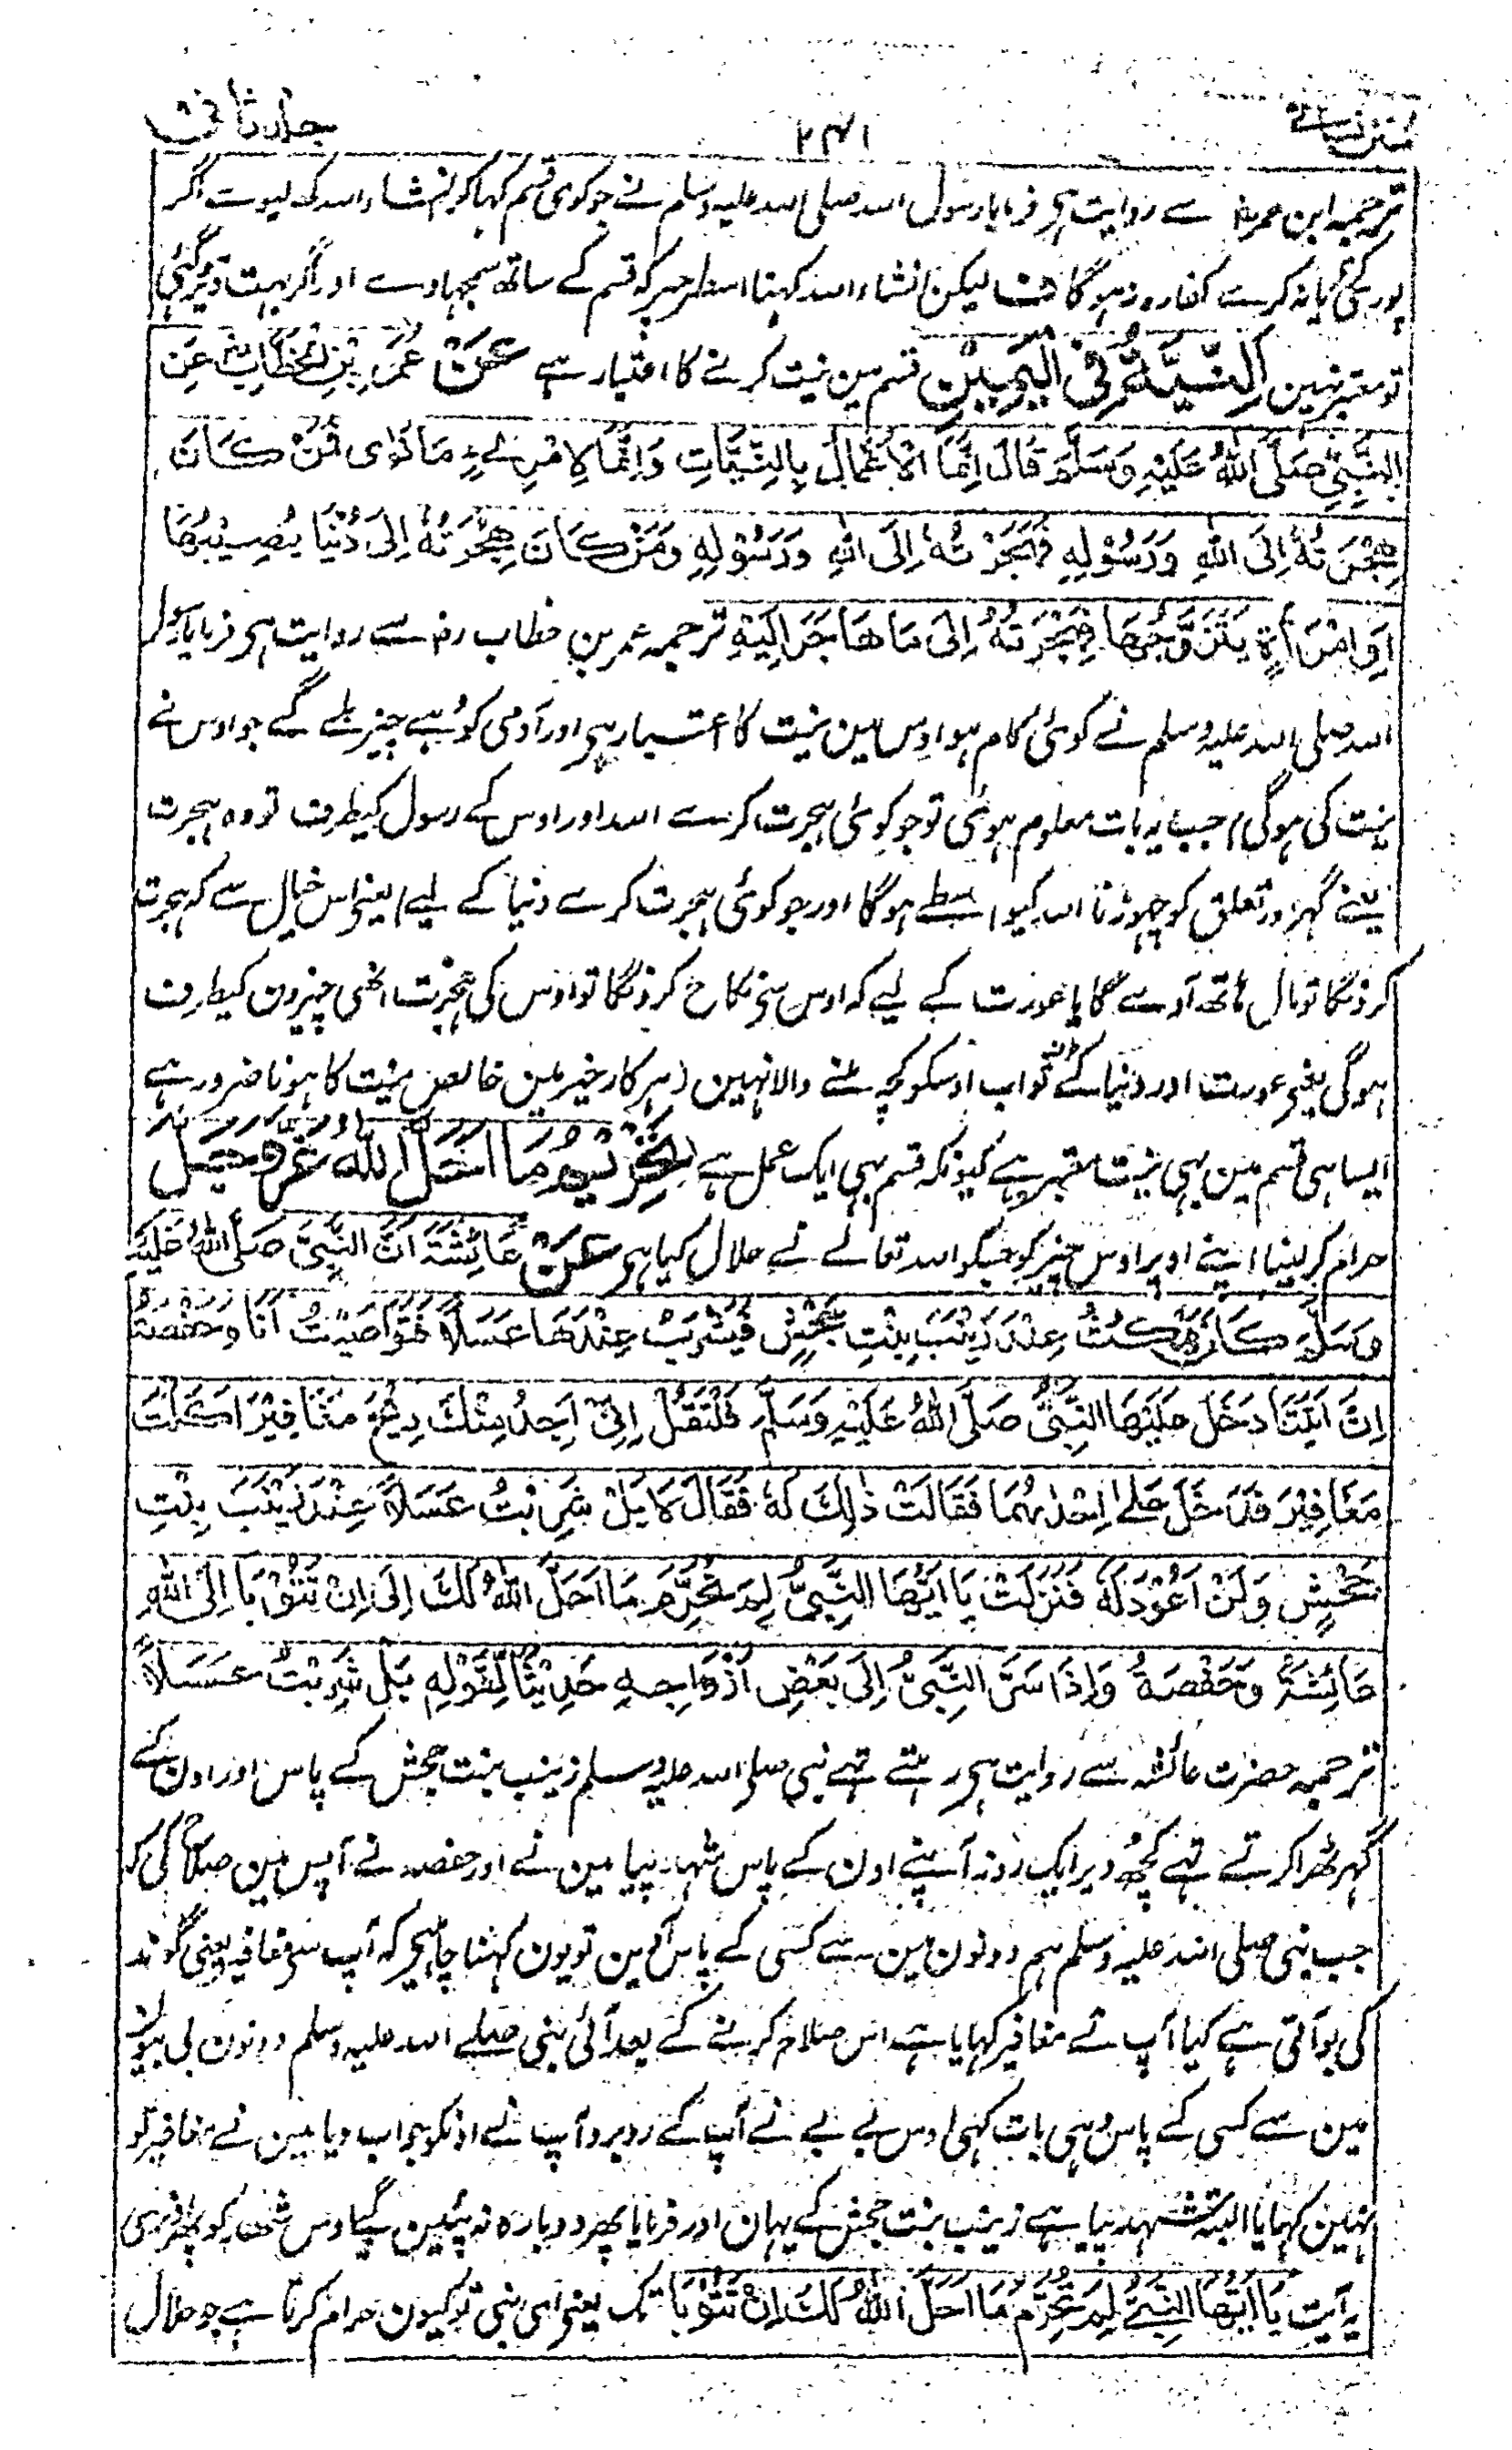 سنن نسائی ۲۴۱ جلد ثانی
ترجمہ ابن عمرؓ سے روایت ہی فرمایا رسول اللہ صلی اللہ علیہ وسلم نے جو کوئی قسم کہا کر انشاء اللہ کہہ لیوے اگر
پوری کی یا نہ کرے کفارہ نہ ہوگا ف لیکن انشاء اللہ کہنا اسطرحپر کہ قسم کے ساتھ سمجہا وے اور اگر بہت دیر کی
تو معتبر نہین اَلنِّيَّةُ فِي الْيَمِيْنِ قسم مین نیت کرنے کا اعتبار ہے عَنْ عُمَرَ بْنِ الْخَطَّابِ عَنِ
النَّبِيِّ صَلَّى اللهُ عَلَيْهِ وَسَلَّمَ قَالَ اِنَّمَا الْاَعْمَالُ بِالنِّيَّاتِ وَاِنَّمَا لِامْرِئٍ مَا نَوٰى فَمَنْ كَانَ
هِجْرَتُهٗ اِلَى اللهِ وَرَسُوْلِهٖ فَهِجْرَتُهٗ اِلَى اللهِ وَرَسُوْلِهٖ وَمَنْ كَانَ هِجْرَتُهٗ اِلٰى دُنْيَا يُصِيْبُهَا
اَوِ امْرَأَةٍ يَتَزَوَّجُهَا فَهِجْرَتُهٗ اِلٰى مَا هَاجَرَ اِلَيْهِ ترجمہ عمر بن خطاب رضہ سے روایت ہی فرمایا رسول
اللہ صلی اللہ علیہ وسلم نے کوئی کام ہو اوس مین نیت کا اعتبار ہی اور آدمی کو وہی چیز ملے گے جو اوس نے
نیت کی ہوگی، جب یہ بات معلوم ہوئی تو جو کوئی ہجرت کرے اللہ اور اوس کے رسول کیطرف تو وہ ہجرت
یعنے گہر اور تعلق کو چہوڑنا اللہ کیواسطے ہوگا اور جو کوئی ہجرت کرے دنیا کے لیے، یعنی اس خیال سے کہ ہجرت
کرونگا تو مال ہاتھ آوے گا یا عورت کے لیے کہ اوس سے نکاح کرونگا تو اوس کی ہجرت انہی چیزون کیطرف
ہوگی یعنی عورت اور دنیا کے ثواب اوسکو کچہ ملنے والا نہین (ہر کار خیر مین خالص نیت کا ہونا ضرور ہے
ایسا ہی قسم مین بہی نیت معتبر ہے کیونکہ قسم بہی ایک عمل ہے تَحْرِيْمُ مَا اَحَلَّ اللهُ عَزَّ وَجَلَّ
حرام کر لینا اپنے اوپر اوس چیز کو جسکو اللہ تعالے نے حلال کیا ہی عَنْ عَائِشَةَ اَنَّ النَّبِيَّ صَلَّى اللهُ عَلَيْهِ
وَسَلَّمَ كَانَ يَمْكُثُ عِنْدَ زَيْنَبَ بِنْتِ جَحْشٍ فَيَشْرَبُ عِنْدَهَا عَسَلًا فَتَوَاصَيْتُ اَنَا وَحَفْصَةُ
اِنَّ اَيَّتَنَا دَخَلَ عَلَيْهَا النَّبِيُّ صَلَّى اللهُ عَلَيْهِ وَسَلَّمَ فَلْتَقُلْ اِنِّيْ اَجِدُ مِنْكَ رِيْحَ مَغَافِيْرَ اَكَلْتَ
مَغَافِيْرَ فَدَخَلَ عَلٰى اِحْدٰىهُمَا فَقَالَتْ ذٰلِكَ لَهٗ فَقَالَ لَا بَلْ شَرِبْتُ عَسَلًا عِنْدَ زَيْنَبَ بِنْتِ
جَحْشٍ وَلَنْ اَعُوْدَ لَهٗ فَنَزَلَتْ يَا اَيُّهَا النَّبِيُّ لِمَ تُحَرِّمُ مَا اَحَلَّ اللهُ لَكَ اِلٰى اِنْ تَتُوْبَا اِلَى اللهِ
عَائِشَةُ وَحَفْصَةُ وَاِذَا سَرَّ النَّبِيُّ اِلٰى بَعْضِ اَزْوَاجِهٖ حَدِيْثًا لِقَوْلِهٖ بَلْ شَرِبْتُ عَسَلًا
ترجمہ حضرت عائشہ سے روایت ہی رہتے تہے نبی صلی اللہ علیہ وسلم زینب بنت جحش کے پاس اور اون کے
گہر ٹھرا کرتے تہے کچھ دیر ایک روز آپنے اون کے پاس شہد پیا مین نے اور حفصہ نے آپس مین صلاح کی کہ
جب نبی صلی اللہ علیہ وسلم ہم دونون مین سے کسی کے پاس آئین تو یون کہنا چاہیے کہ آپ سے مغافیر یعنی گوند
کی بو آتی ہے کیا آپ نے مغافیر کہایا ہے اس صلاح کرنے کے بعد آئی نبی صلے اللہ علیہ وسلم دونون بی بیون
مین سے کسی کے پاس وہی بات کہی اوس بے بے نے آپ کے روبرو آپ نے اونکو جواب دیا مین نے مغافیر تو
نہین کہایا البتہ شہد پیا ہے زینب بنت جحش کے یہان اور فرمایا پھر دوبارہ نہ پئین گے اوس
یہ آیت يَا اَيُّهَا النَّبِيُّ لِمَ تُحَرِّمُ مَا اَحَلَّ اللهُ لَكَ اِنْ تَتُوْبَا تک یعنی اے نبی تو کیون حرام کرتا ہے جو حلال